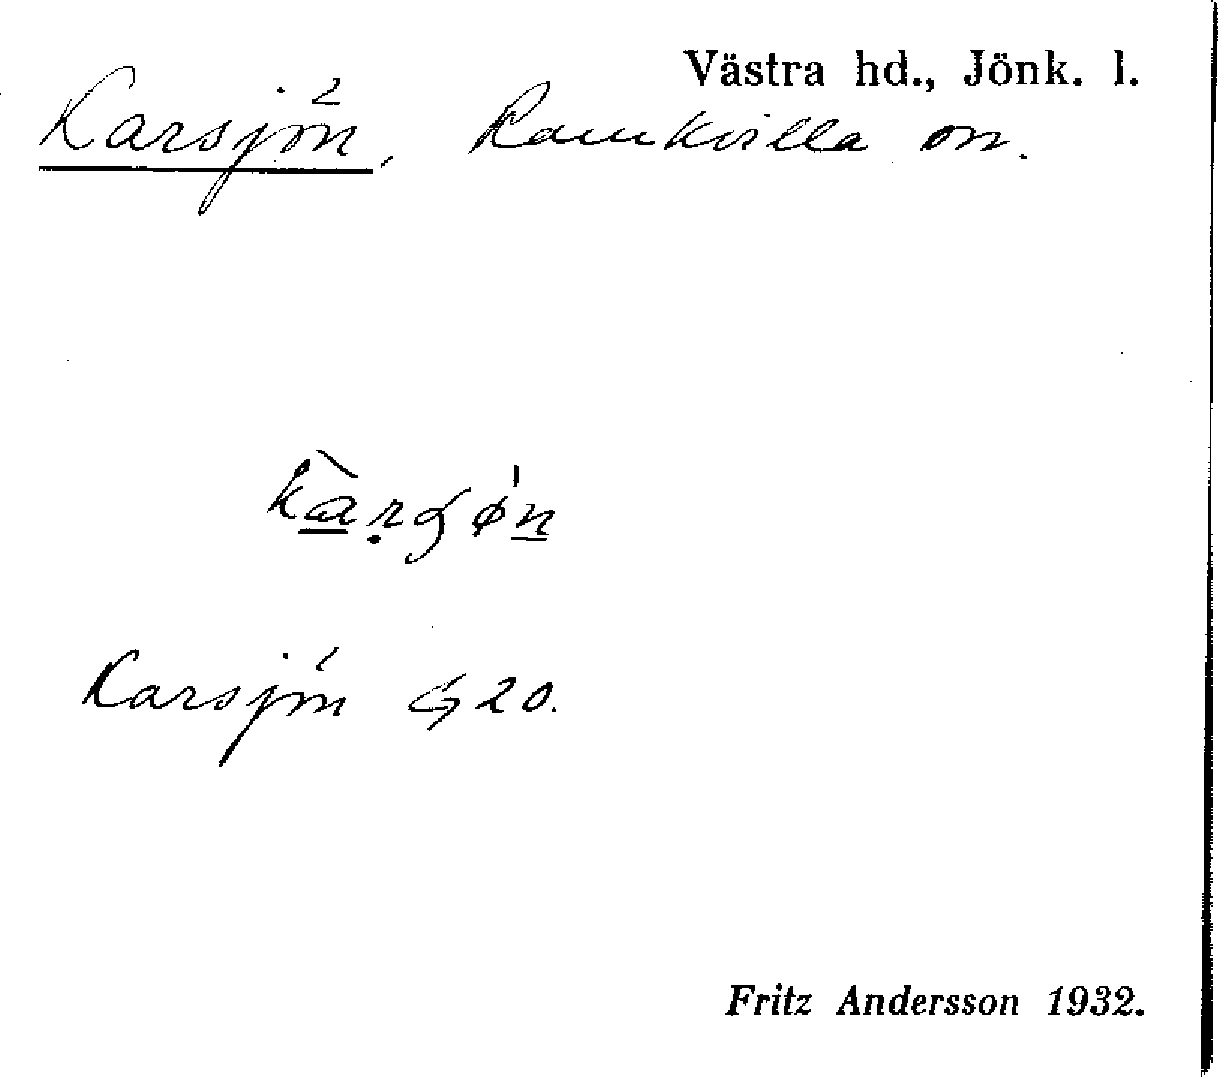 Västra hd., Jönk. l.
Karsjön, Ramkvilla sn.
Karsjön G 20.
Fritz Andersson 1932.